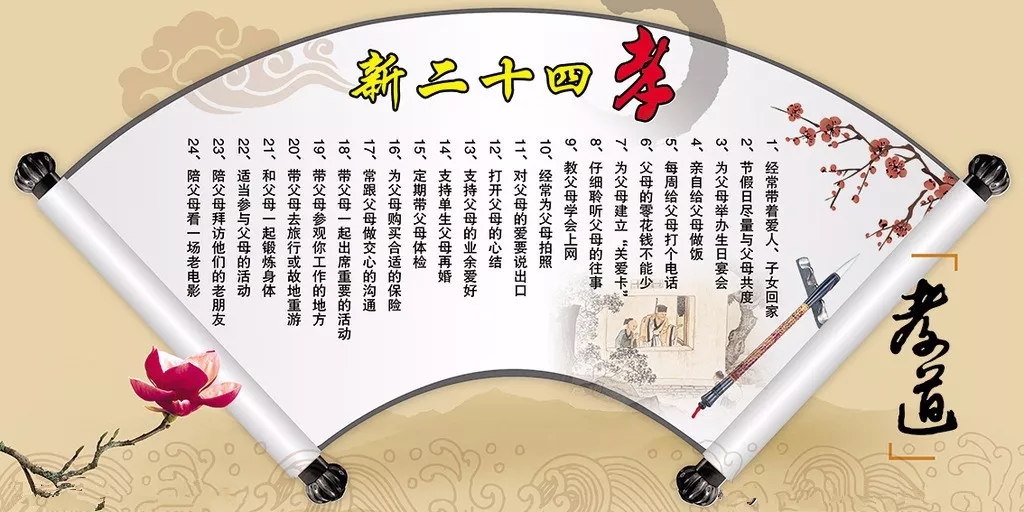 新二十四孝
1、经常带着爱人、子女回家
2、节假日尽量与父母共度
3、为父母举办生日宴会
4、亲自给父母做饭
5、每周给父母打个电话
6、父母的零花钱不能少
7、为父母建立“关爱卡”
8、仔细聆听父母的往事
9、教父母学会上网
10、经常为父母拍照
11、对父母的爱要说出口
12、打开父母的心结
13、支持父母的业余爱好
14、支持单生父母再婚
15、定期带父母体检
16、为父母购买合适的保险
17、常跟父母做交心的沟通
18、带父母一起出席重要的活动
19、带父母参观你工作的地方
20、带父母去旅行或故地重游
21、和父母一起锻炼身体
22、适当参与父母的活动
23、陪父母拜访他们的老朋友
24、陪父母看一场老电影
孝道